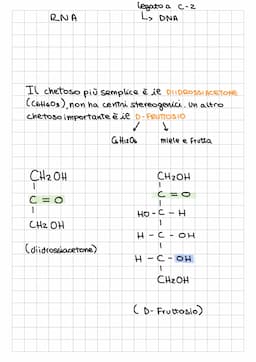 legato a C-2
RNA ↳ DNA
Il chetoso più semplice è il DIIDROSSIACETONE
(C6H6O3), non ha centri stereogenici. Un altro
chetoso importante è il D-FRUTTOSIO
C6H12O6 miele e frutta
CH2OH
C = O
CH2OH
(diidrossiacetone)
CH2OH
C = O
HO - C - H
H - C - OH
H - C - OH
CH2OH
(D-Fruttosio)